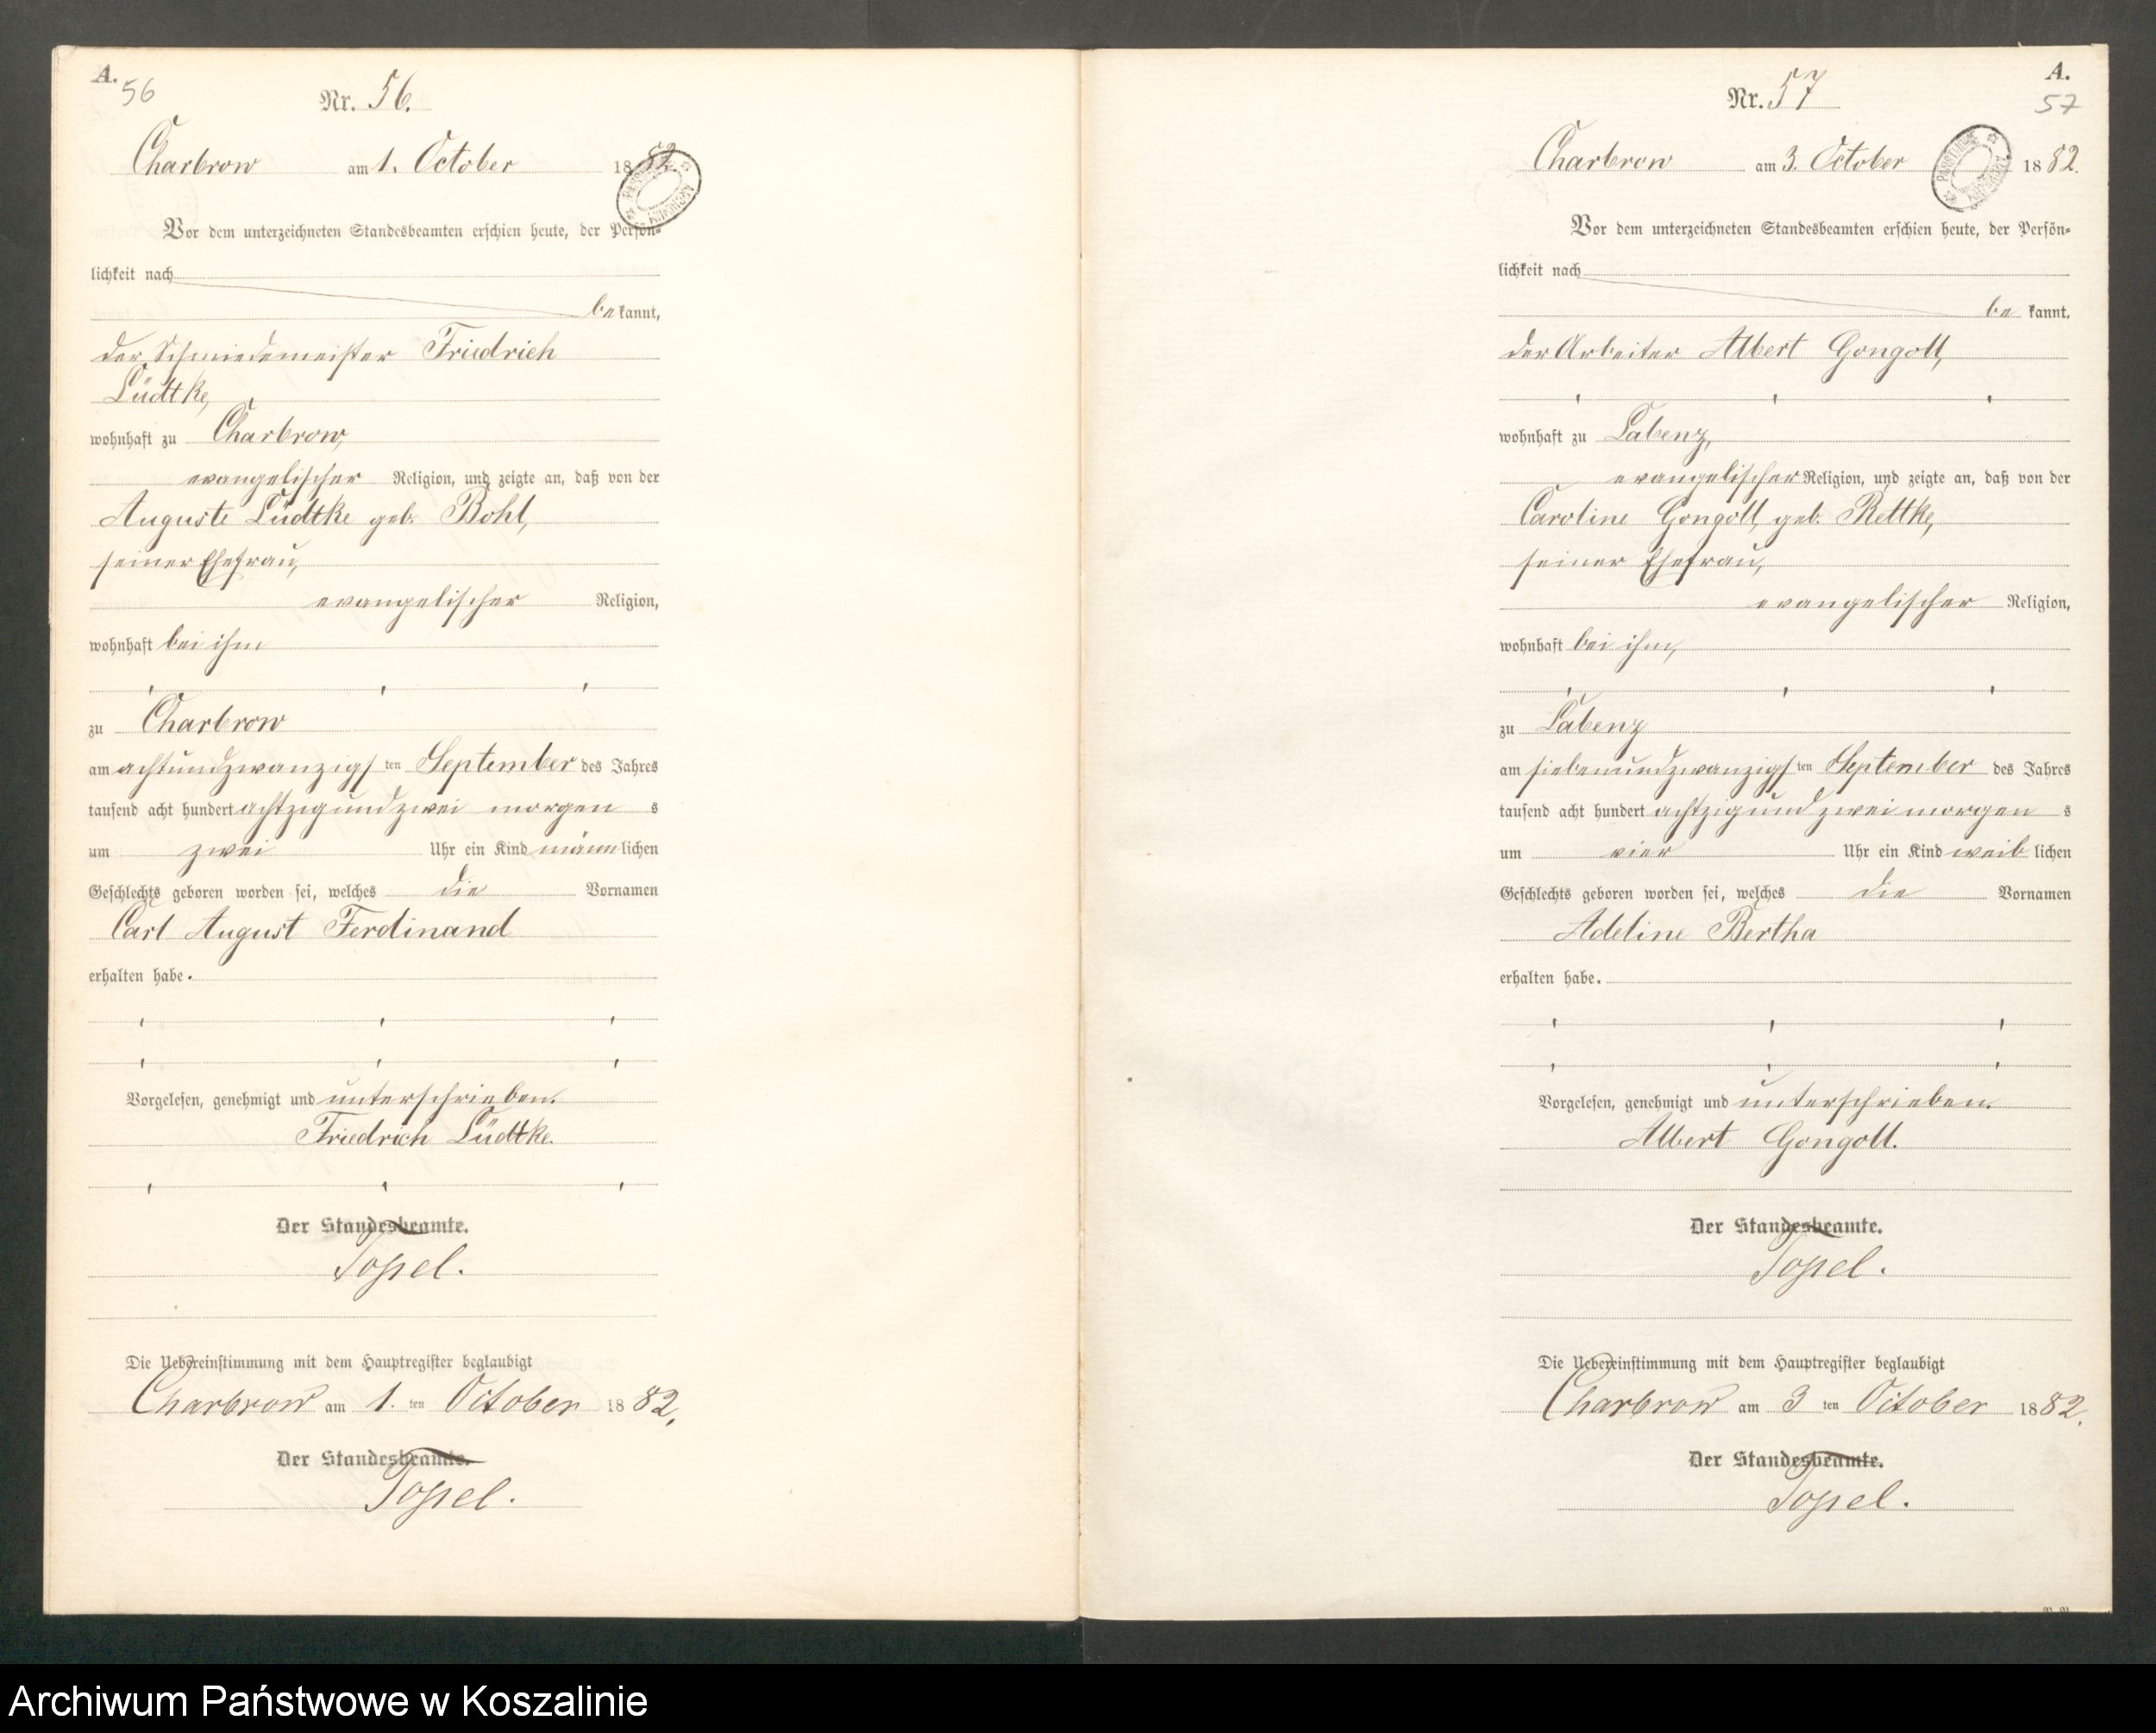 A.
56
Nr. 56.
Charbrow am 1. October 1882
Vor dem unterzeichneten Standesbeamten erschien heute, der Persön-
lichkeit nach
be kannt,
der Schmiedemeister Friedrich
Lüdtke,
wohnhaft zu Charbrow,
evangelischer Religion, und zeigte an, daß von der
Auguste Lüdtke geb. Bohl,
seiner Ehefrau,
evangelischer Religion,
wohnhaft bei ihm
zu Charbrow
am achtundzwanzigsten September des Jahres
tausend acht hundert achtzig und zwei morgens
um zwei Uhr ein Kind männlichen
Geschlechts geboren worden sei, welches die Vornamen
Carl August Ferdinand
erhalten habe.
Vorgelesen, genehmigt und unterschrieben.
Friedrich Lüdtke.
Der Standesbeamte.
Die Uebereinstimmung mit dem Hauptregister beglaubigt
Charbrow am 1. ten October 1882.
Der Standesbeamte.
A.
57
Nr. 57
Charbrow am 3. October 1882.
Vor dem unterzeichneten Standesbeamten erschien heute, der Persön-
lichkeit nach
be kannt,
der Arbeiter Albert Gongoll,
wohnhaft zu Labenz,
evangelischer Religion, und zeigte an, daß von der
Caroline Gongoll, geb. Rettke,
seiner Ehefrau,
evangelischer Religion,
wohnhaft bei ihm,
zu Labenz
am siebenundzwanzigsten September des Jahres
tausend acht hundert achtzig und zwei morgens
um vier Uhr ein Kind weiblichen
Geschlechts geboren worden sei, welches die Vornamen
Adeline Bertha
erhalten habe.
Vorgelesen, genehmigt und unterschrieben.
Albert Gongoll.
Der Standesbeamte.
Die Uebereinstimmung mit dem Hauptregister beglaubigt
Charbrow am 3 ten October 1882.
Der Standesbeamte.
Archiwum Państwowe w Koszalinie